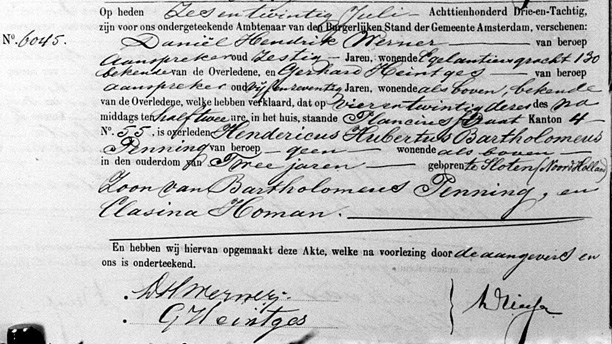 Op heden Zesentwintig Juli Achttienhonderd Drie-en-Tachtig,
zijn voor ons ondergeteekende Ambtenaar van den Burgerlijken Stand der Gemeente Amsterdam, verschenen:
No. 6045. Daniël Hendrik Werner van beroep
aanspreker oud Zestig Jaren, wonende Egelantiersgracht 130
bekende van de Overledene, en Gerhard Heintges van beroep
aanspreker oud Vijfenzeventig Jaren, wonende als boven, bekende
van de Overledene, welke hebben verklaard, dat op Vierentwintig dezes des na
middags ten half twee ure, in het huis, staande Planciusstraat Kanton 4
No. 55. is overleden Hendericus Hubertus Bartholomeus
Penning van beroep geen wonende als boven
in den ouderdom van Twee jaren geboren te Sloten, Noord Holland
Zoon van Bartholomeus Penning, en
Clasina Homan.
En hebben wij hiervan opgemaakt deze Akte, welke na voorlezing door de aangevers en
ons is onderteekend.
DHWerner
GHeintges